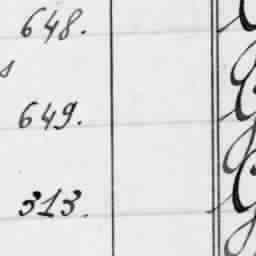 648.
s
649.
313.